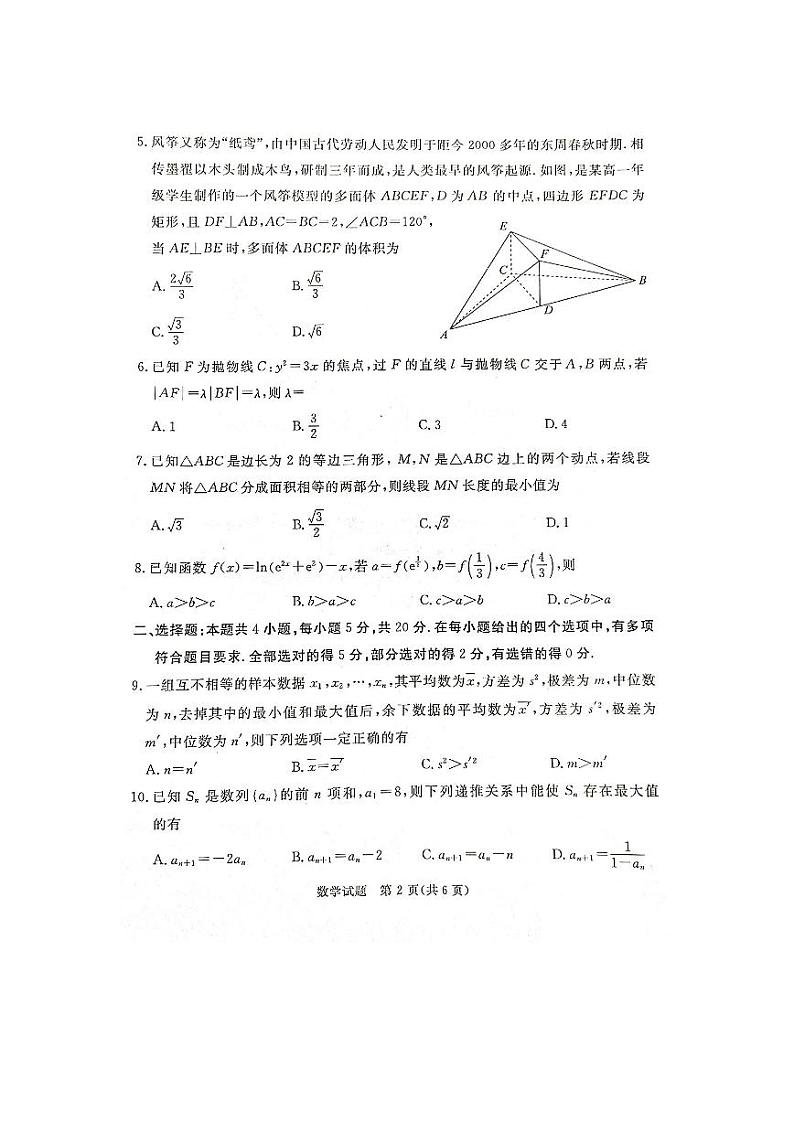 5. 风筝又称为“纸鸢”,由中国古代劳动人民发明于距今 2000 多年的东周春秋时期. 相
传墨翟以木头制成木鸟,研制三年而成,是人类最早的风筝起源. 如图,是某高一年
级学生制作的一个风筝模型的多面体 ABCEF,D 为 AB 的中点,四边形 EFDC 为
矩形,且 DF⊥AB,AC=BC=2,∠ACB=120°,
当 AE⊥BE 时,多面体 ABCEF 的体积为
A. 2√6/3 B. √6/3
C. √3/3 D. √6
E
F
C
B
D
A
6. 已知 F 为抛物线 C:y²=3x 的焦点,过 F 的直线 l 与抛物线 C 交于 A,B 两点,若
|AF|=λ|BF|=λ,则 λ=
A. 1 B. 3/2 C. 3 D. 4
7. 已知△ABC 是边长为 2 的等边三角形, M,N 是△ABC 边上的两个动点,若线段
MN 将△ABC 分成面积相等的两部分,则线段 MN 长度的最小值为
A. √3 B. √3/2 C. √2 D. 1
8. 已知函数 f(x)=ln(e²ˣ+e²)-x,若 a=f(e^{1/2}),b=f(1/3),c=f(4/3),则
A. a>b>c B. b>a>c C. c>a>b D. c>b>a
二、选择题:本题共 4 小题,每小题 5 分,共 20 分. 在每小题给出的四个选项中,有多项
符合题目要求. 全部选对的得 5 分,部分选对的得 2 分,有选错的得 0 分.
9. 一组互不相等的样本数据 x₁,x₂,⋯,xₙ,其平均数为x̄,方差为 s²,极差为 m,中位数
为 n,去掉其中的最小值和最大值后,余下数据的平均数为x̄′,方差为 s′²,极差为
m′,中位数为 n′,则下列选项一定正确的有
A. n=n′ B. x̄=x̄′ C. s²>s′² D. m>m′
10. 已知 Sₙ 是数列{aₙ}的前 n 项和,a₁=8,则下列递推关系中能使 Sₙ 存在最大值
的有
A. aₙ₊₁=-2aₙ B. aₙ₊₁=aₙ-2 C. aₙ₊₁=aₙ-n D. aₙ₊₁=1/(1-aₙ)
数学试题 第 2 页(共 6 页)